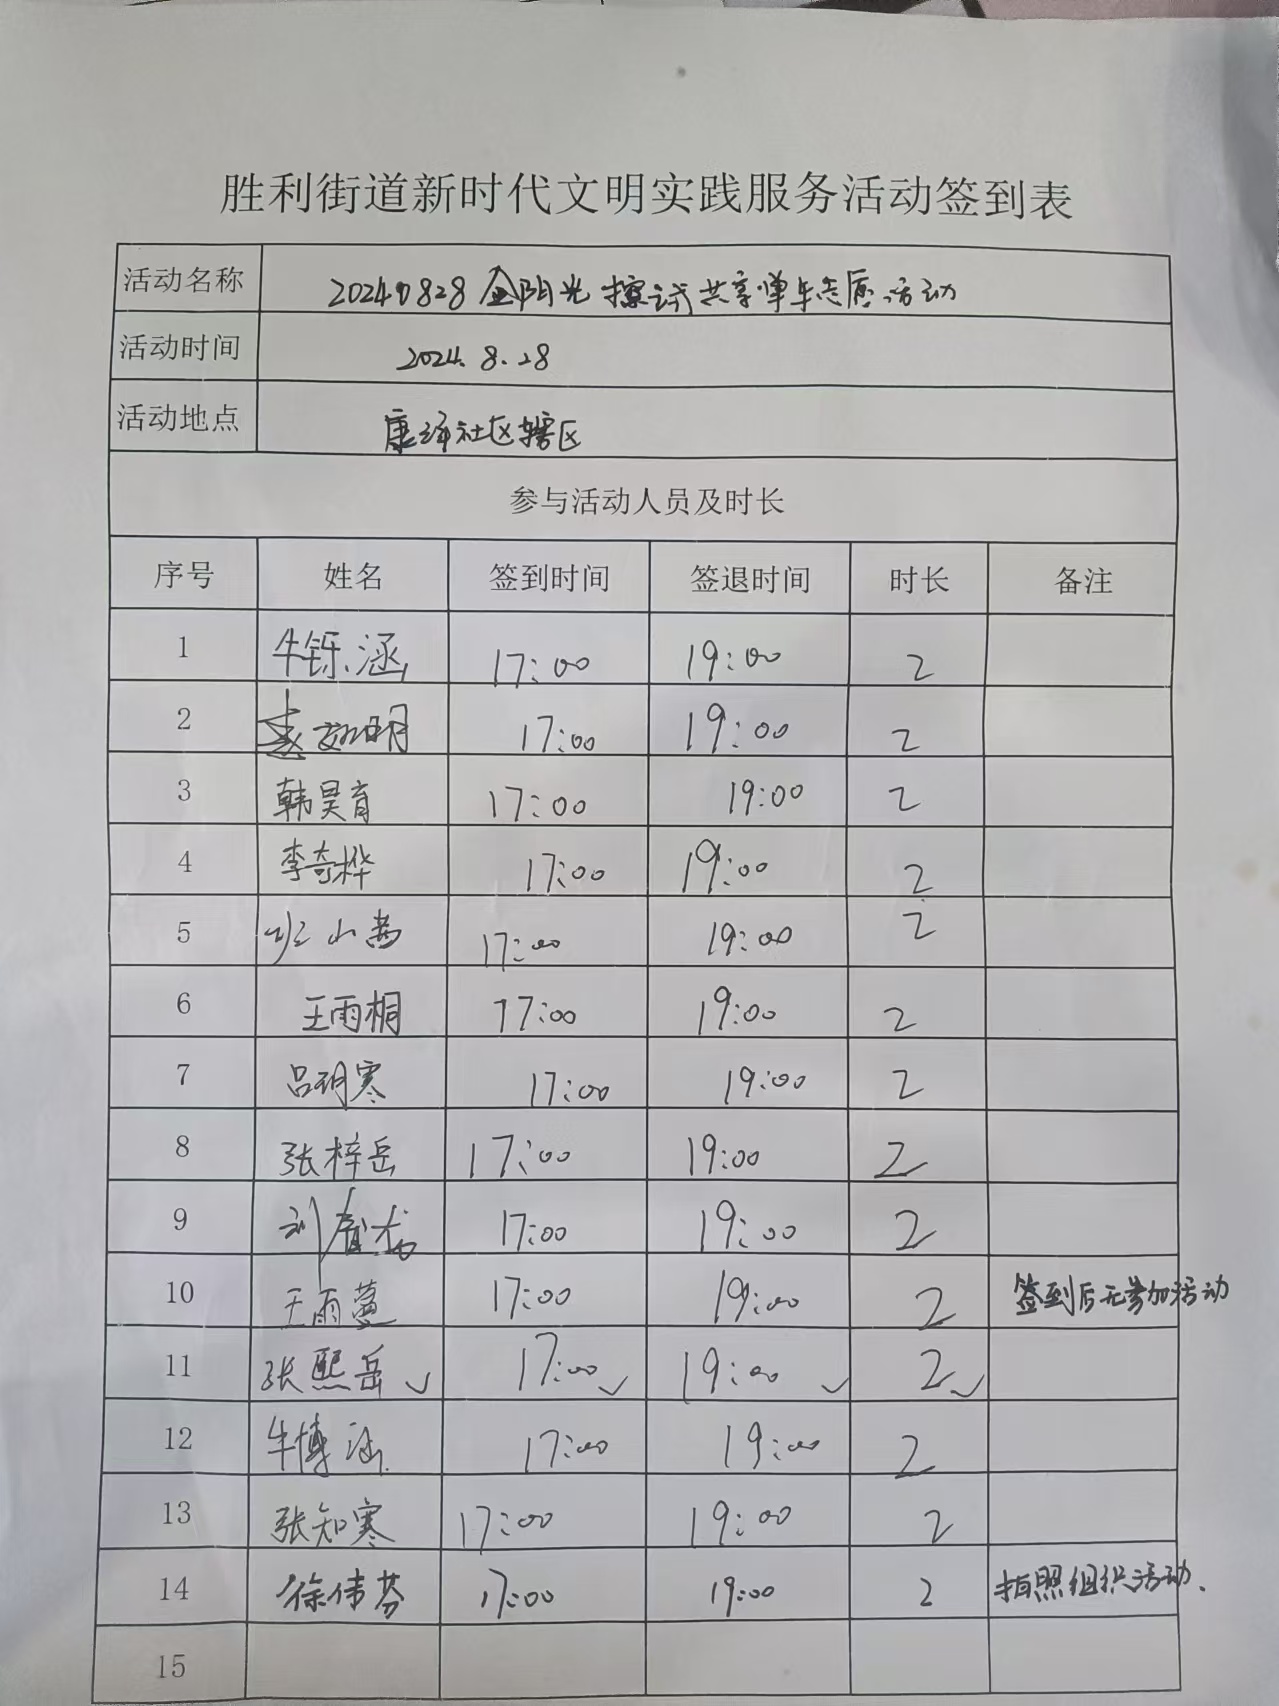 胜利街道新时代文明实践服务活动签到表
活动名称 20240828金阳光擦试共享单车志愿活动
活动时间 2024.8.28
活动地点 康泽社区辖区
参与活动人员及时长
序号 姓名 签到时间 签退时间 时长 备注
1 牛铄涵 17:00 19:00 2
2 17:00 19:00 2
3 韩昊育 17:00 19:00 2
4 李奇桦 17:00 19:00 2
5 班山茜 17:00 19:00 2
6 王雨桐 17:00 19:00 2
7 吕玥寒 17:00 19:00 2
8 张梓岳 17:00 19:00 2
9 刘 17:00 19:00 2
10 王雨蔓 17:00 19:00 2 签到后无参加活动
11 张熙岳 17:00 19:00 2
12 牛博涵 17:00 19:00 2
13 张知寒 17:00 19:00 2
14 徐伟芬 17:00 19:00 2 拍照组织活动.
15